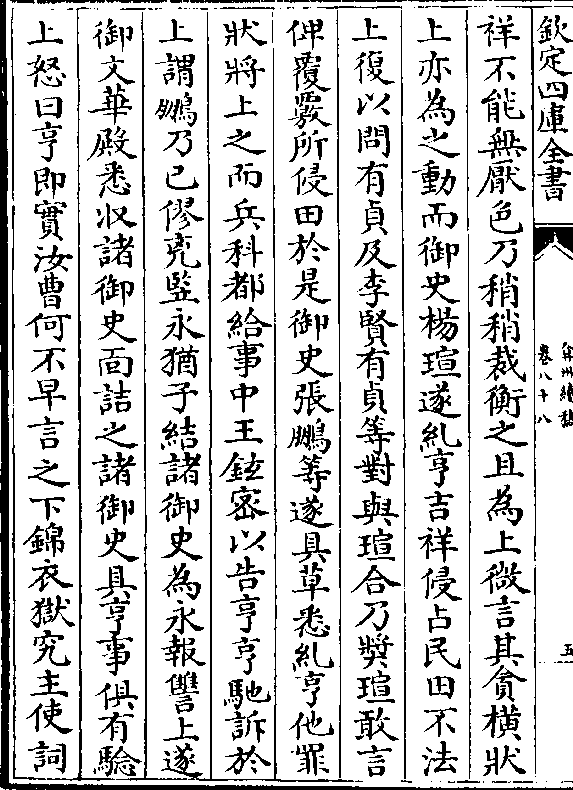 欽定四庫全書
弇州續稿
卷八十八
五
祥不能無厭色乃稍稍裁衡之且為上微言其貪橫狀
上亦為之動而御史楊瑄遂糺亨吉祥侵占民田不法
上復以問有貞及李賢有貞等對與瑄合乃奬瑄敢言
俾覆覈所侵田於是御史張鵬等遂具草悉糺亨他罪
狀將上之而兵科都給事中王鉉密以告亨亨馳訴於
上謂鵬乃已僇兇豎永猶子結諸御史為永報讐上遂
御文華殿悉収諸御史面詰之諸御史具亨事俱有驗
上怒曰亨即實汝曹何不早言之下錦衣獄究主使詞